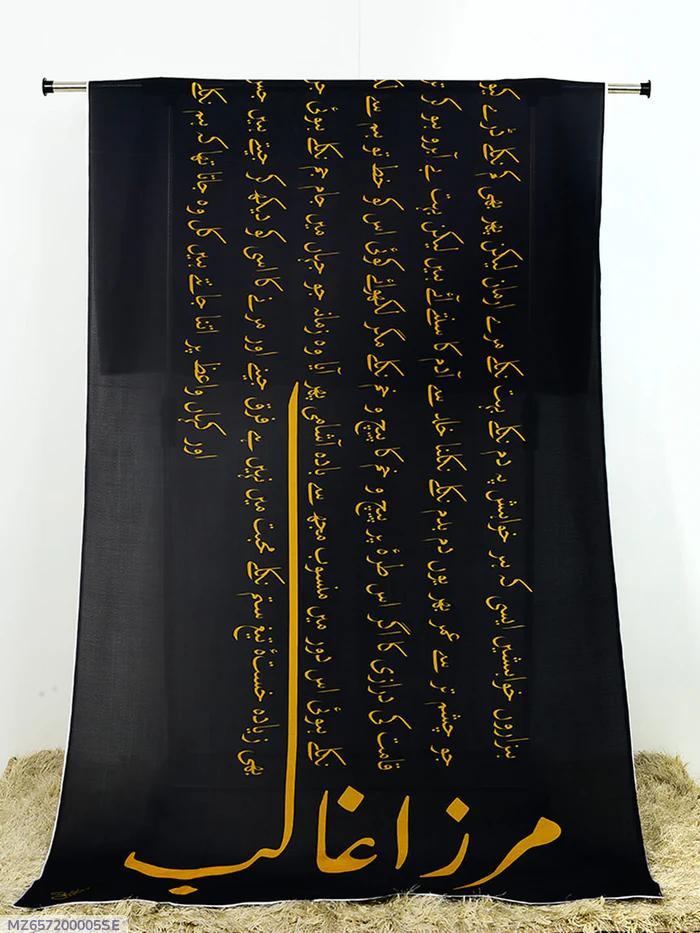 ہزاروں خواہشیں ایسی کہ ہر خواہش پہ دم نکلے بہت نکلے مرے ارمان لیکن پھر بھی کم نکلے ڈرے کیوں
جو چشم تر سے عمر بھر یوں دم بدم نکلے نکلنا خلد سے آدم کا سنتے آئے ہیں لیکن بہت بے آبرو ہو کر
قامت کی درازی کا اگر اس طرۂ پر پیچ و خم کا پیچ و خم نکلے مگر لکھوائے کوئی اس کو خط تو ہم سے
نکلے ہوئی اس دور میں منسوب مجھ سے بادہ آشامی پھر آیا وہ زمانہ جو جہاں میں جام جم نکلے ہوئی
بھی زیادہ خستۂ تیغ ستم نکلے محبت میں نہیں ہے فرق جینے اور مرنے کا اسی کو دیکھ کر جیتے ہیں جس
اور کہاں واعظ پر اتنا جانتے ہیں کل وہ جاتا تھا کہ ہم نکلے
مرزا غالب
MZ657200005SE